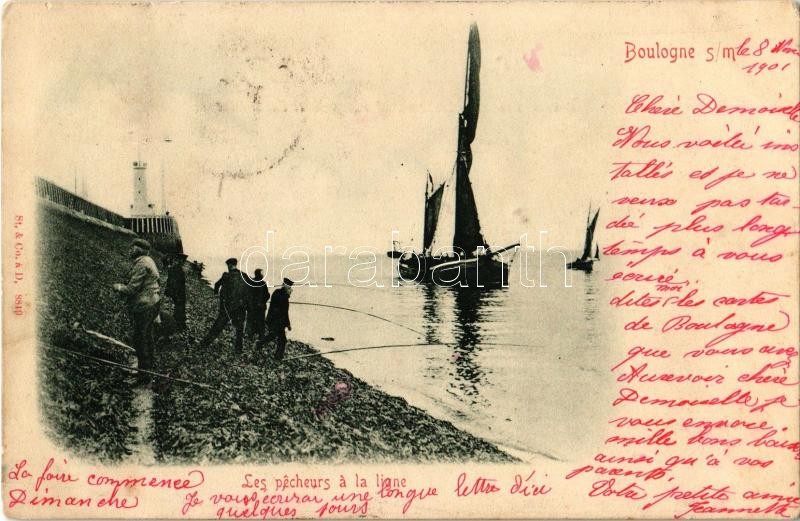 Boulogne s/m le 8 Nov
1901
Chère Demoiselle
Nous voila ins
tallés et je ne
veux pas tar
der plus long
temps à vous
écrire
dites moi les cartes
de Boulogne
que vous avez
Aurevoir chère
Demoiselle je
vous envoie
mille bons baisers
ainsi qu'à vos
parents.
Votre petite amie
Jeanneth
St. & Co. à D. 8819
darabanth
Les pêcheurs à la ligne
La foire commence
Dimanche
Je vous écrirai une longue lettre d'ici
quelques jours